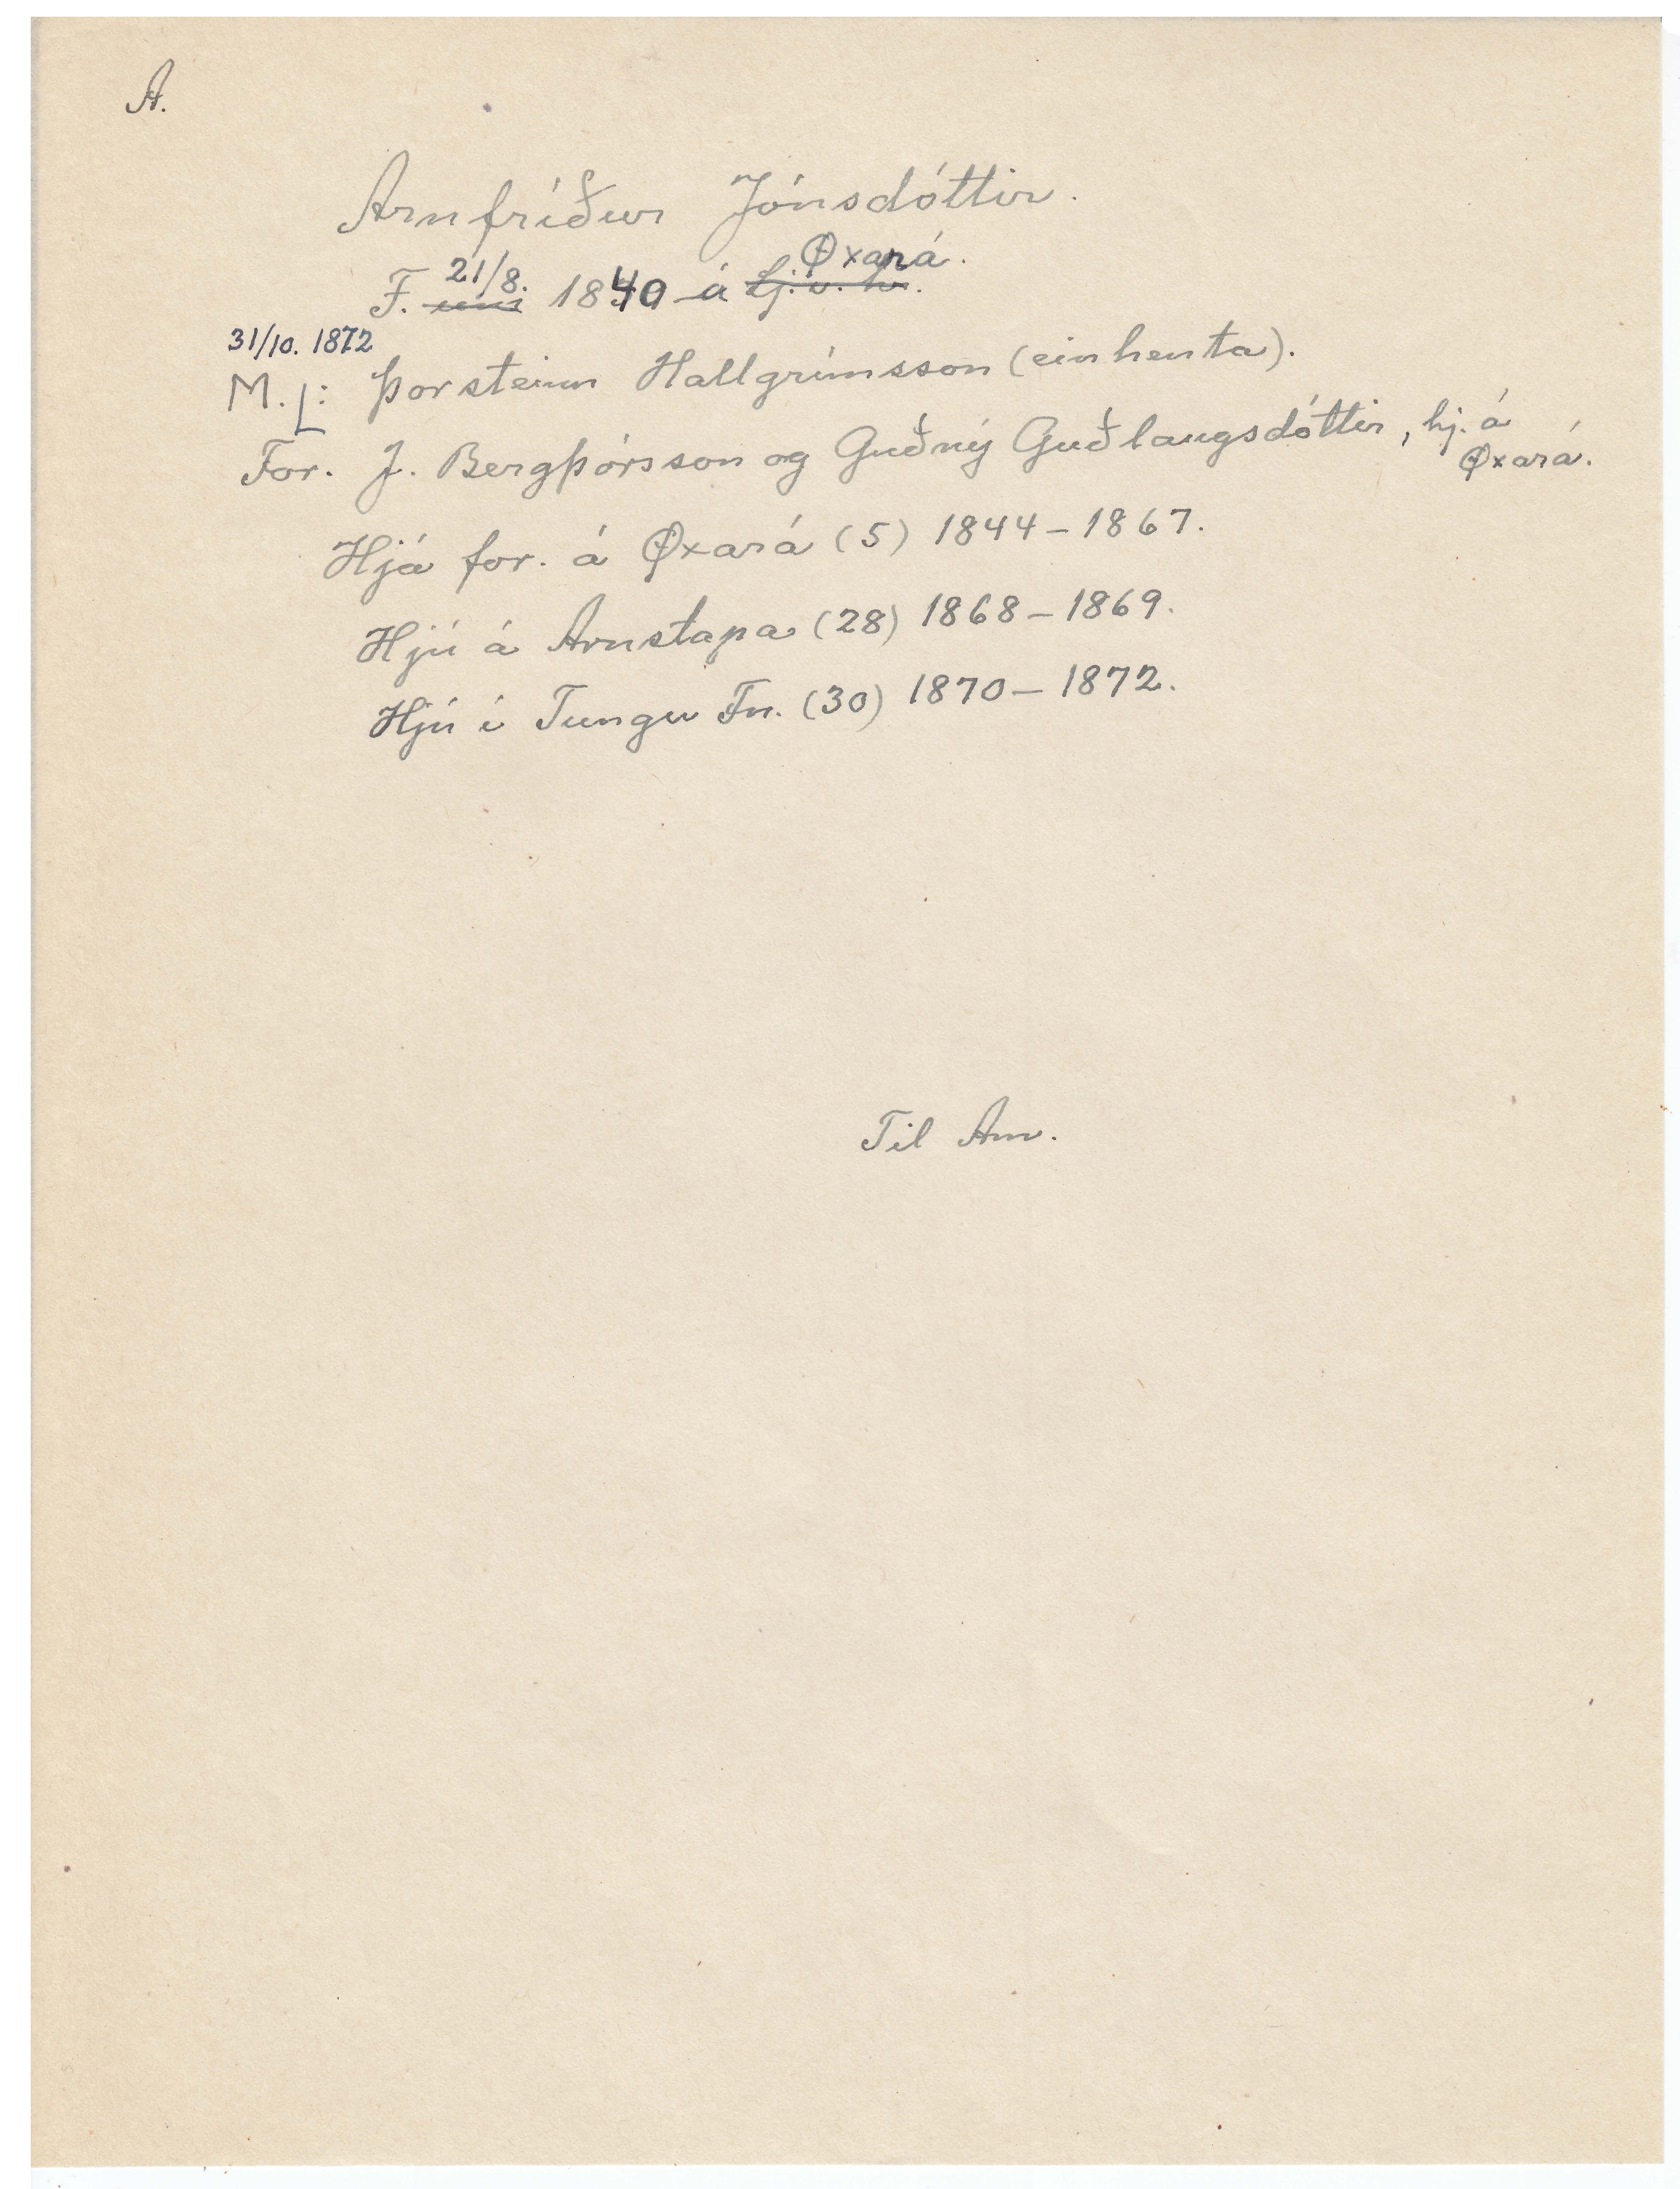 A.
Arnfríður Jónsdóttir.
F. 21/8. 1840 á Øxará.
31/10. 1872
M.L: Þorsteinn Hallgrímsson (einhenta).
For. J. Bergþórsson og Guðný Guðlaugsdóttir, hj. á
Øxará.
Hjá for. á Øxará (5) 1844-1867.
Hjú á Arnstapa (28) 1868-1869.
Hjú í Tungu Fn. (30) 1870-1872.
Til Am.